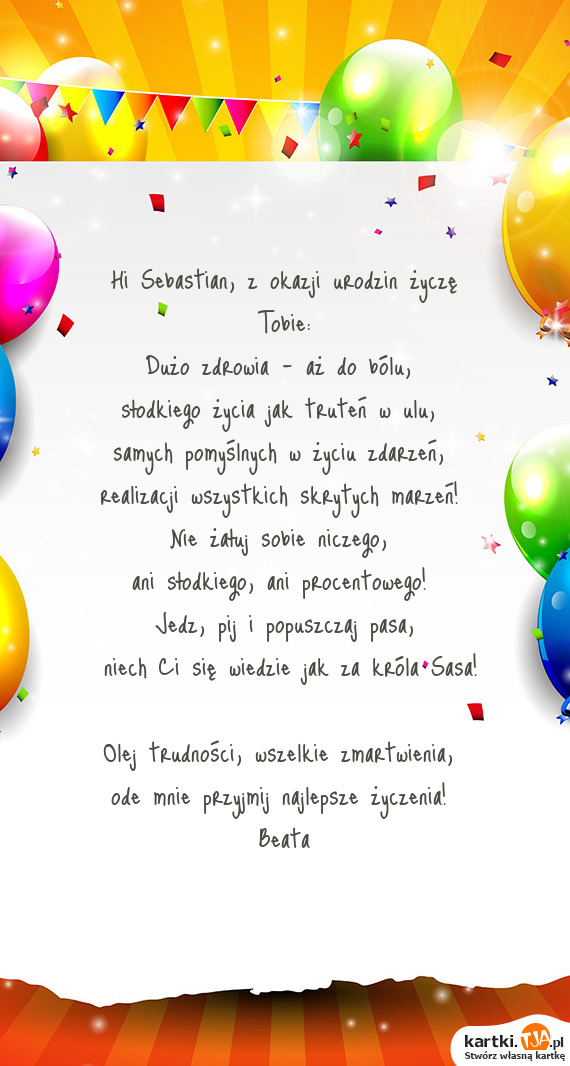 Hi Sebastian, z okazji urodzin życzę
Tobie:
Dużo zdrowia - aż do bólu,
słodkiego życia jak truteń w ulu,
samych pomyślnych w życiu zdarzeń,
realizacji wszystkich skrytych marzeń!
Nie żałuj sobie niczego,
ani słodkiego, ani procentowego!
Jedz, pij i popuszczaj pasa,
niech Ci się wiedzie jak za króla Sasa!
Olej trudności, wszelkie zmartwienia,
ode mnie przyjmij najlepsze życzenia!
Beata
kartki.TJA.pl
Stwórz własną kartkę